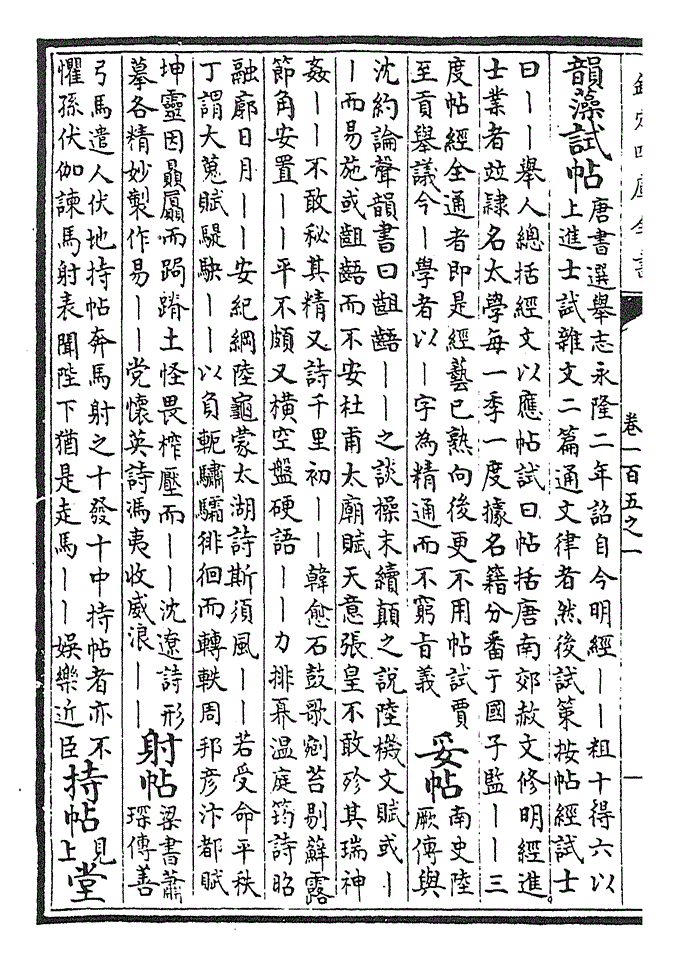 欽定四庫全書 卷一百五之一 一
韻藻試帖
唐書選舉志永隆二年詔自今明經丨丨粗十得六以
上進士試雜文二篇通文律者然後試策按帖經試士
曰丨丨舉人總括經文以應帖試曰帖括唐南郊赦文修明經進
士業者竝隸名太學每一季一度據名籍分番于國子監丨丨三
度帖經全通者即是經藝已熟向後更不用帖試賈
至貢舉議今丨學者以丨字為精通而不窮旨義
妥帖
南史陸
厥傳與
沈約論聲韻書曰齟齬丨丨之談操末續顛之說陸機文賦或丨
丨而易施或齟齬而不安杜甫太廟賦天意張皇不敢殄其瑞神
姦丨丨不敢秘其精又詩千里初丨丨韓愈石鼓歌剜苔剔蘚露
節角安置丨丨平不頗又橫空盤硬語丨丨力排奡溫庭筠詩昭
融廓日月丨丨安紀綱陸龜蒙太湖詩斯須風丨丨若受命平秩
丁謂大蒐賦騠駃丨丨以負軛驌驦徘徊而轉軼周邦彦汴都賦
坤靈因贔屭而跼蹐土怪畏榨壓而丨丨沈遼詩形
摹各精妙製作易丨丨党懷英詩馮夷收威浪丨丨
射帖
梁書蕭
琛傳善
弓馬遣人伏地持帖奔馬射之十發十中持帖者亦不
懼孫伏伽諫馬射表聞陛下猶是走馬丨丨娛樂近臣
持帖
見
上
堂